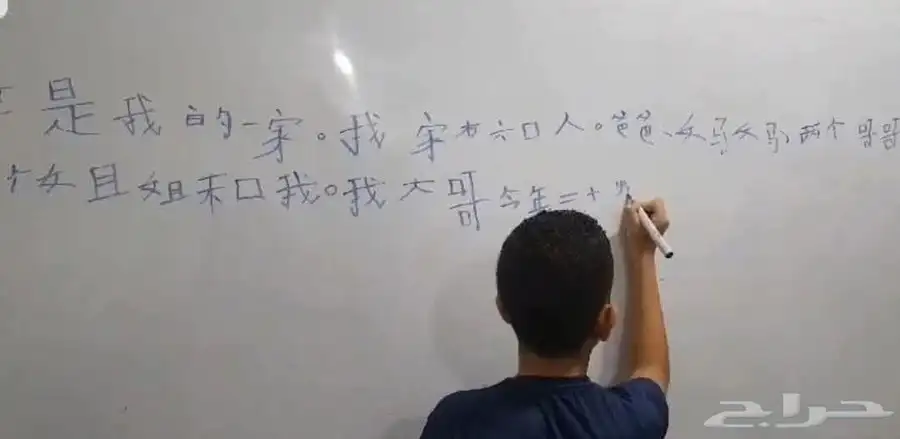 是我的一家。我家有六口人。爸爸、妈妈、两个哥哥
个姐姐和我。我大哥今年二十
حراج